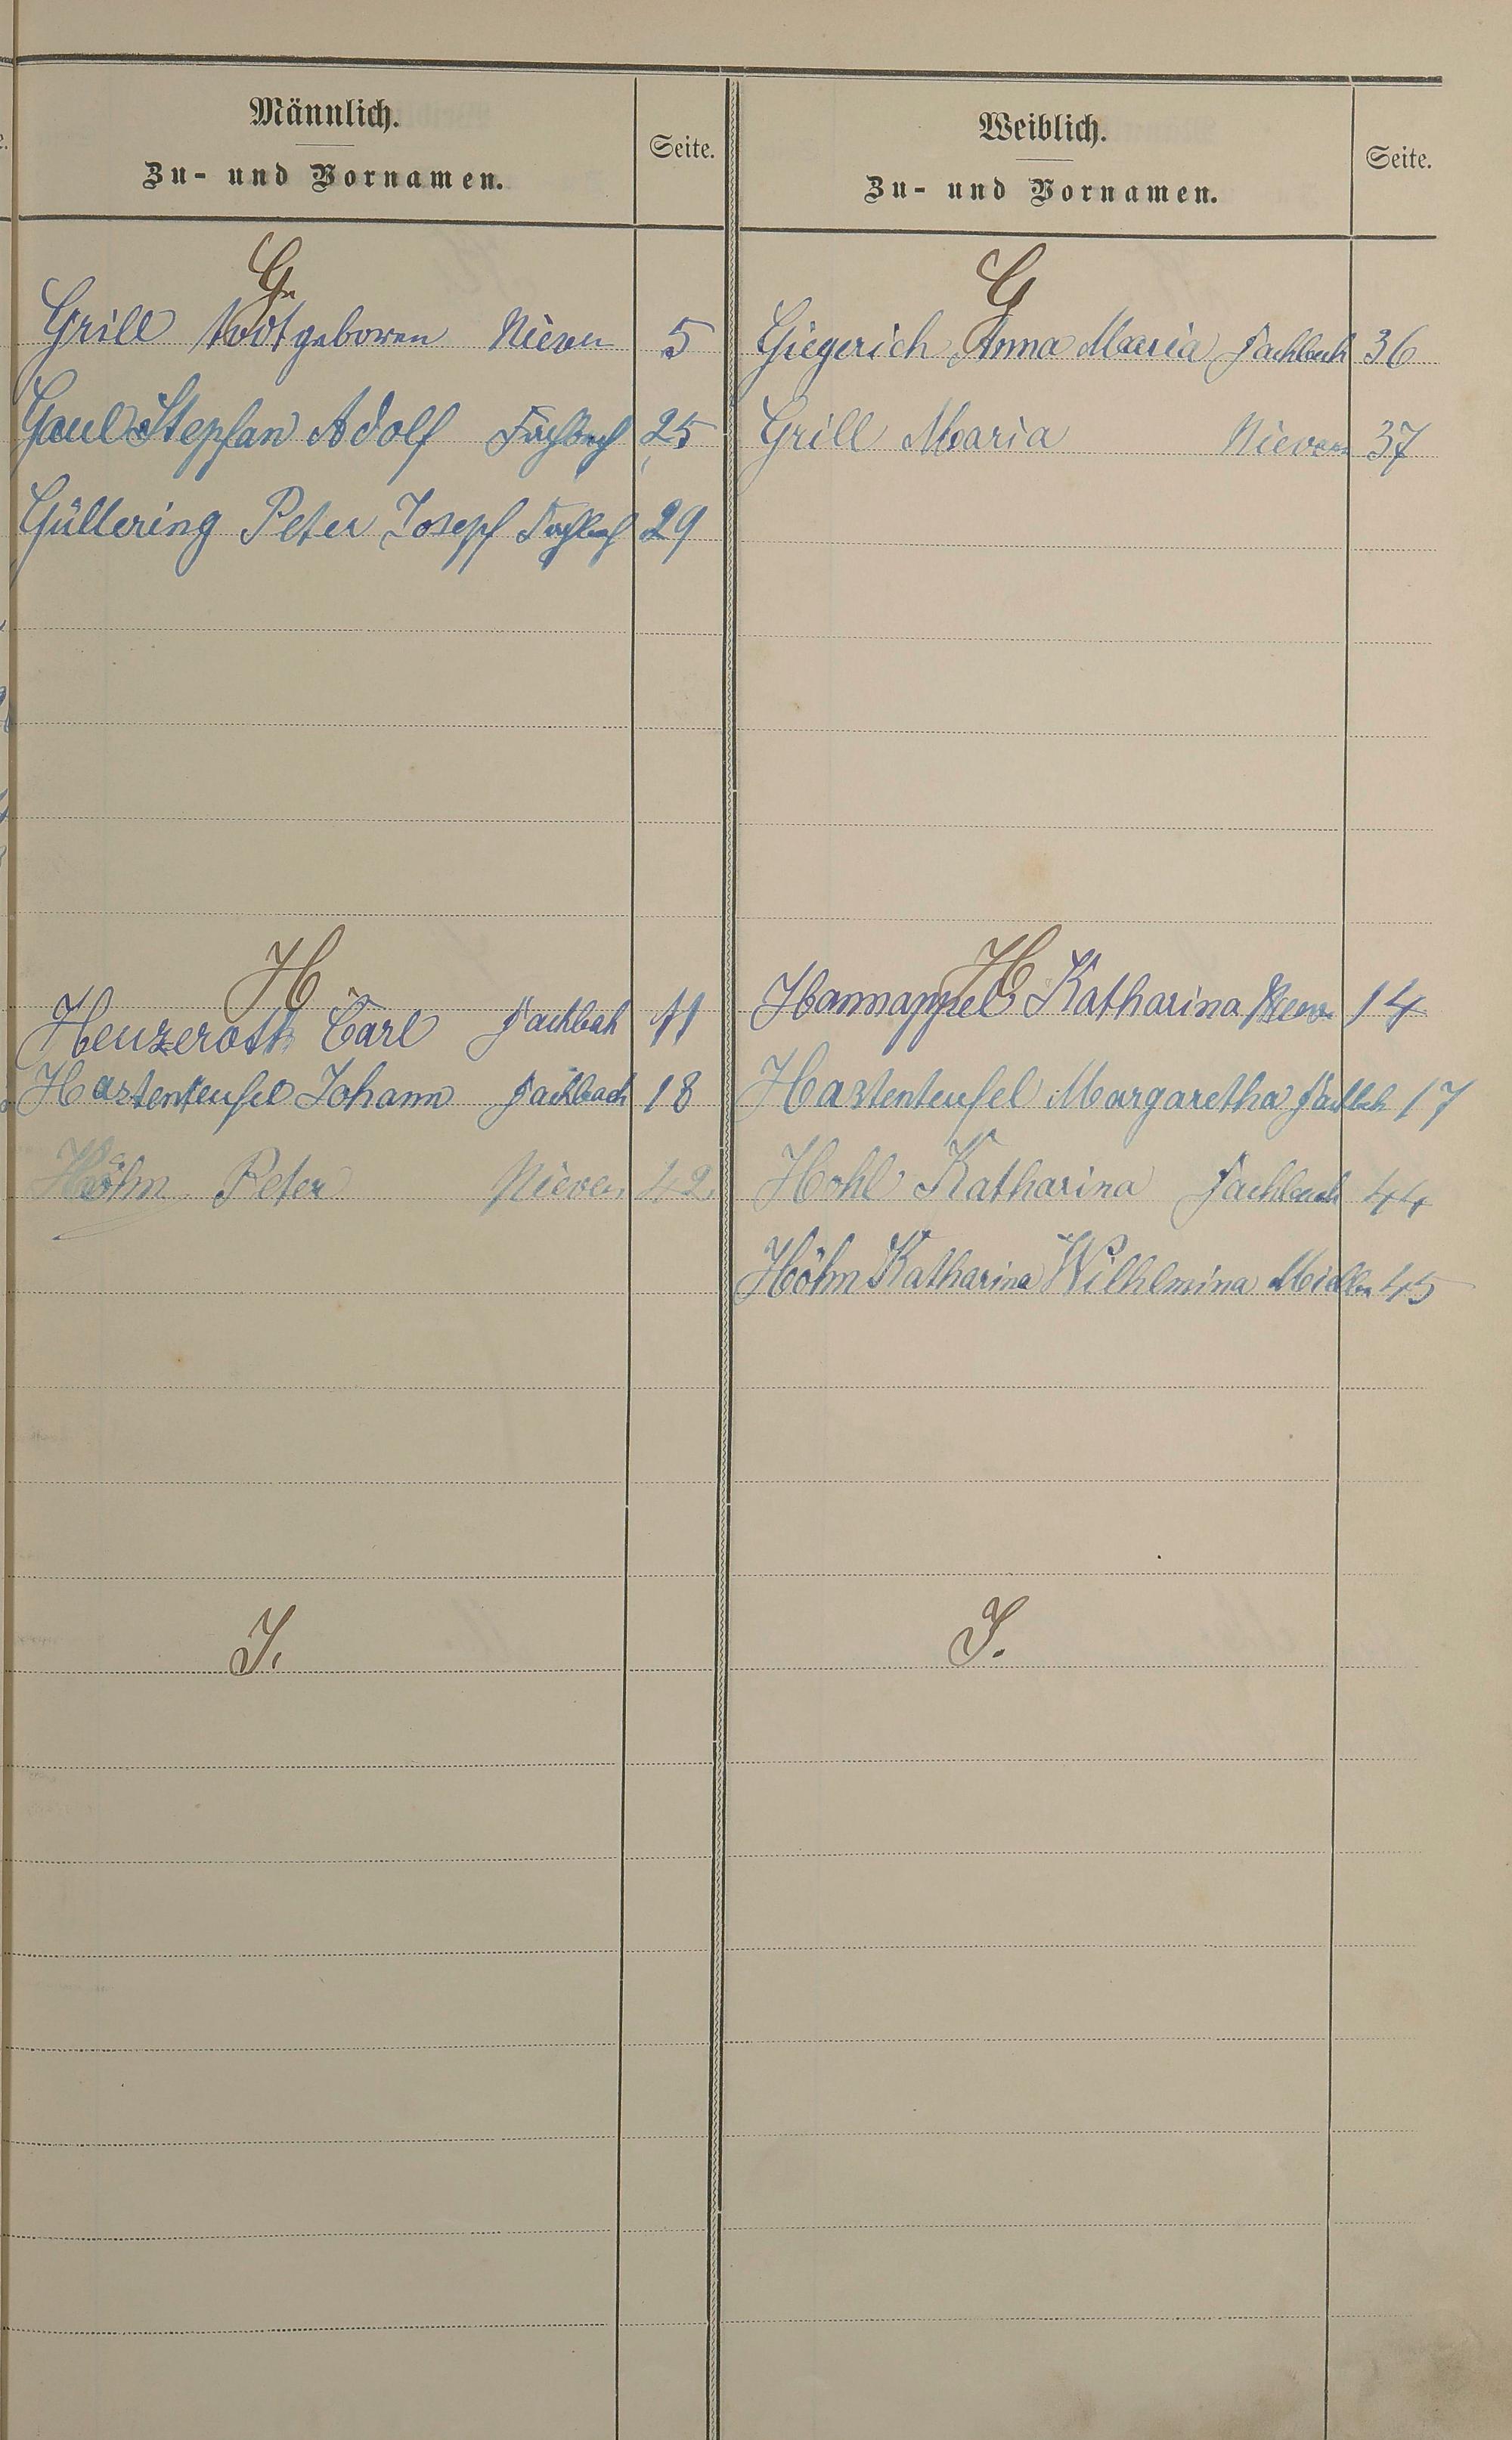 Männlich.
Zu- und Vornamen.
Seite.
G.
Grill todtgeboren Nievern 5
Gaul Stephan Adolf Fachbach 25
Gültering Peter Joseph Fachbach 29
H
Heuzeroth Carl Fachbach 11
Hastenteufel Johann Fachbach 18
Höhn Peter Nievern 42
J.
Weiblich.
Zu- und Vornamen.
Seite.
G
Giegerich Anna Maria Fachbach 36
Grill Maria Nievern 37
H
Hannappel Katharina Nievern 14
Hastenteufel Margaretha Fachbach 17
Hohl Katharina Fachbach 44
Höhn Katharina Wilhelmina 45
J.